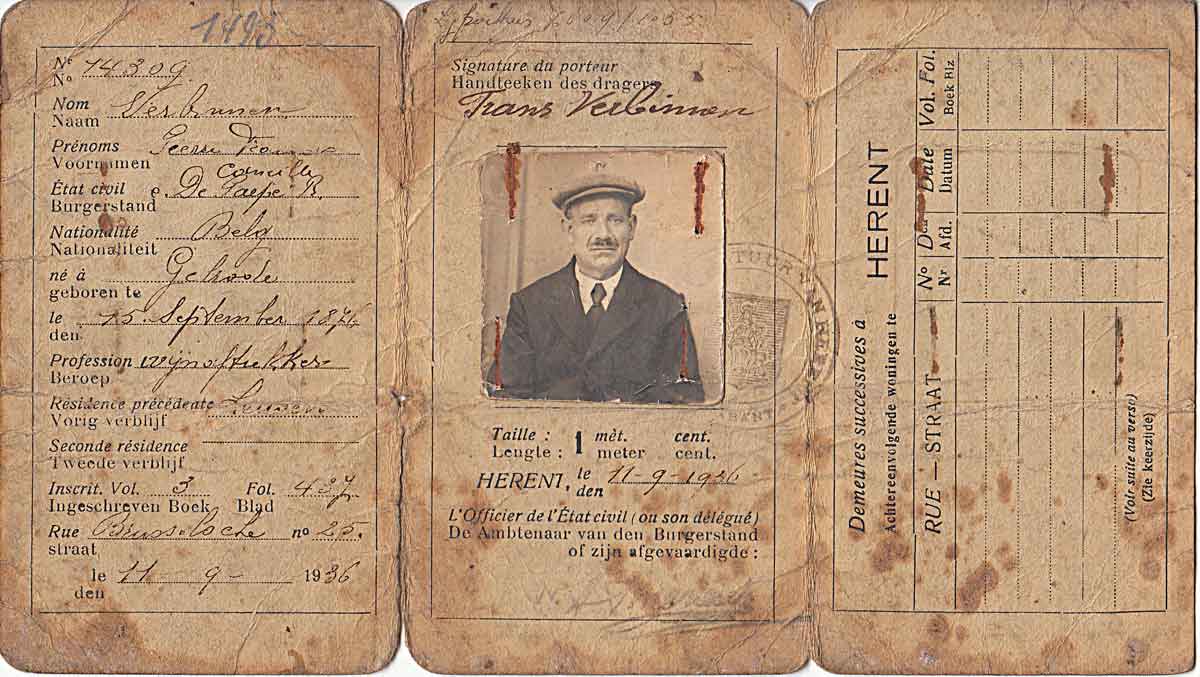 1495
Nº 14309
Nº
Nom
Naam Verbinnen
Prénoms Pierre
Voornamen
Camille
État civil e. De Paepe R.
Burgerstand
Nationalité Belg
Nationaliteit
né à Gelrode
geboren te
le 15 September 1876
den
Profession
Beroep
Résidence précédente Leuven
Vorig verblijf
Seconde résidence
Tweede verblijf
Inscrit. Vol. 3 Fol. 437
Ingeschreven Boek Blad
Rue Brusselsche nº 25.
straat
le 11 - 9 - 1936
den
Signature du porteur
Handteeken des dragers
Frans Verbinnen
Taille : 1 mèt. cent.
Lengte : meter cent.
HERENT, le 11-9-1936
den
L'Officier de l'État civil (ou son délégué)
De Ambtenaar van den Burgerstand
of zijn afgevaardigde :
Demeures successives à
Achtereenvolgende woningen te
HERENT
RUE — STRAAT
Nº
Nr
Afd.
Date
Datum
Vol. Fol.
Boek Blz
(Voir suite au verso)
(Zie keerzijde)